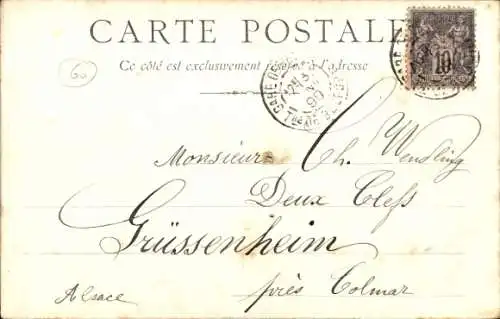 CARTE POSTALE
Ce côté est exclusivement réservé à l'adresse
60
10
GARE
Monsieur Ch. Wendling
Deux Clefs
Grüssenheim
Alsace près Colmar